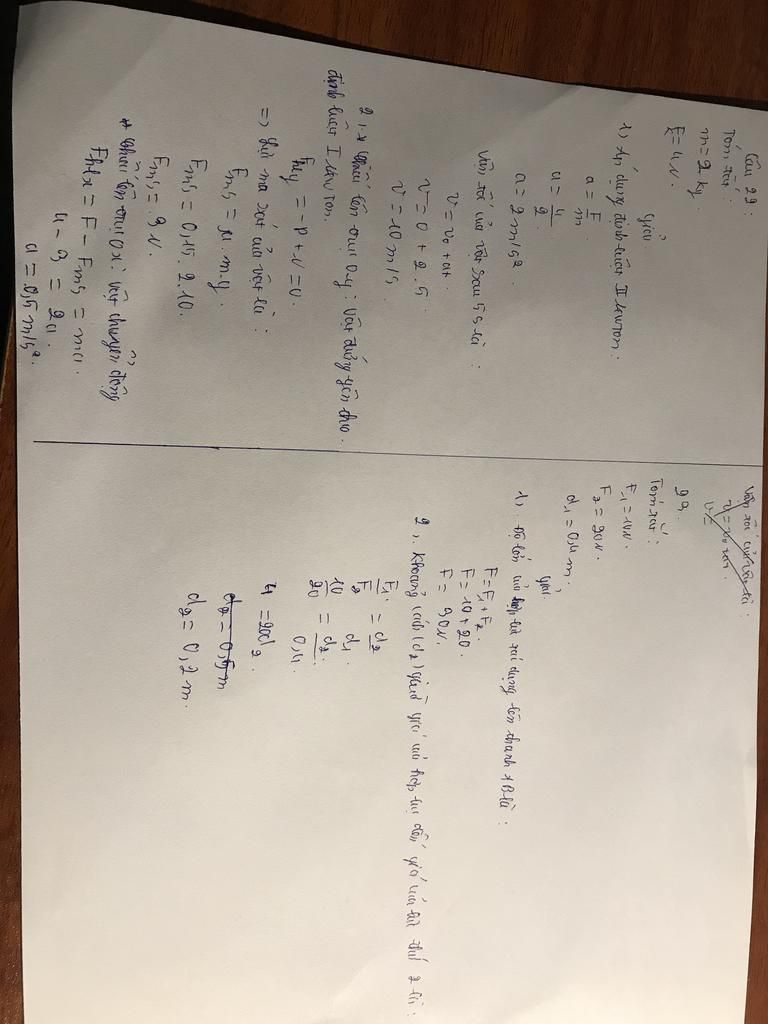 Câu 29:
Tóm tắt:
m = 2 kg
F = 4 N.
giải.
1) Áp dụng định luật II Newton:
a = F/m
a = 4/2
a = 2 m/s²
Vận tốc của vật sau 5s là:
v = v₀ + at
v = 0 + 2.5
v = 10 m/s.
2, * chiếu lên trục Oy: vật đứng yên theo
định luật I Newton.
Fhly = -P + N = 0.
=> Lực ma sát của vật là:
Fms = μ.m.g.
Fms = 0,15.2.10.
Fms = 3 N.
* chiếu lên trục Ox: vật chuyển động
Fhlx = F - Fms = ma.
4 - 3 = 2a.
a = 0,5 m/s².
Vận tốc của vật là:
v = v₀ + at.
v =
Tóm tắt:
F₁ = 10 N.
F₂ = 20 N.
d₁ = 0,4 m.
giải.
1, Độ lớn của hợp lực tác dụng lên thanh AB là:
F = F₁ + F₂.
F = 10 + 20.
F = 30 N.
2, Khoảng cách (d₂) giữa giá của hợp lực đến giá của lực thứ 2 là:
F₁/F₂ = d₂/d₁.
10/20 = d₂/0,4.
4 = 20d₂.
d₂ = 0,5 m
d₂ = 0,2 m.